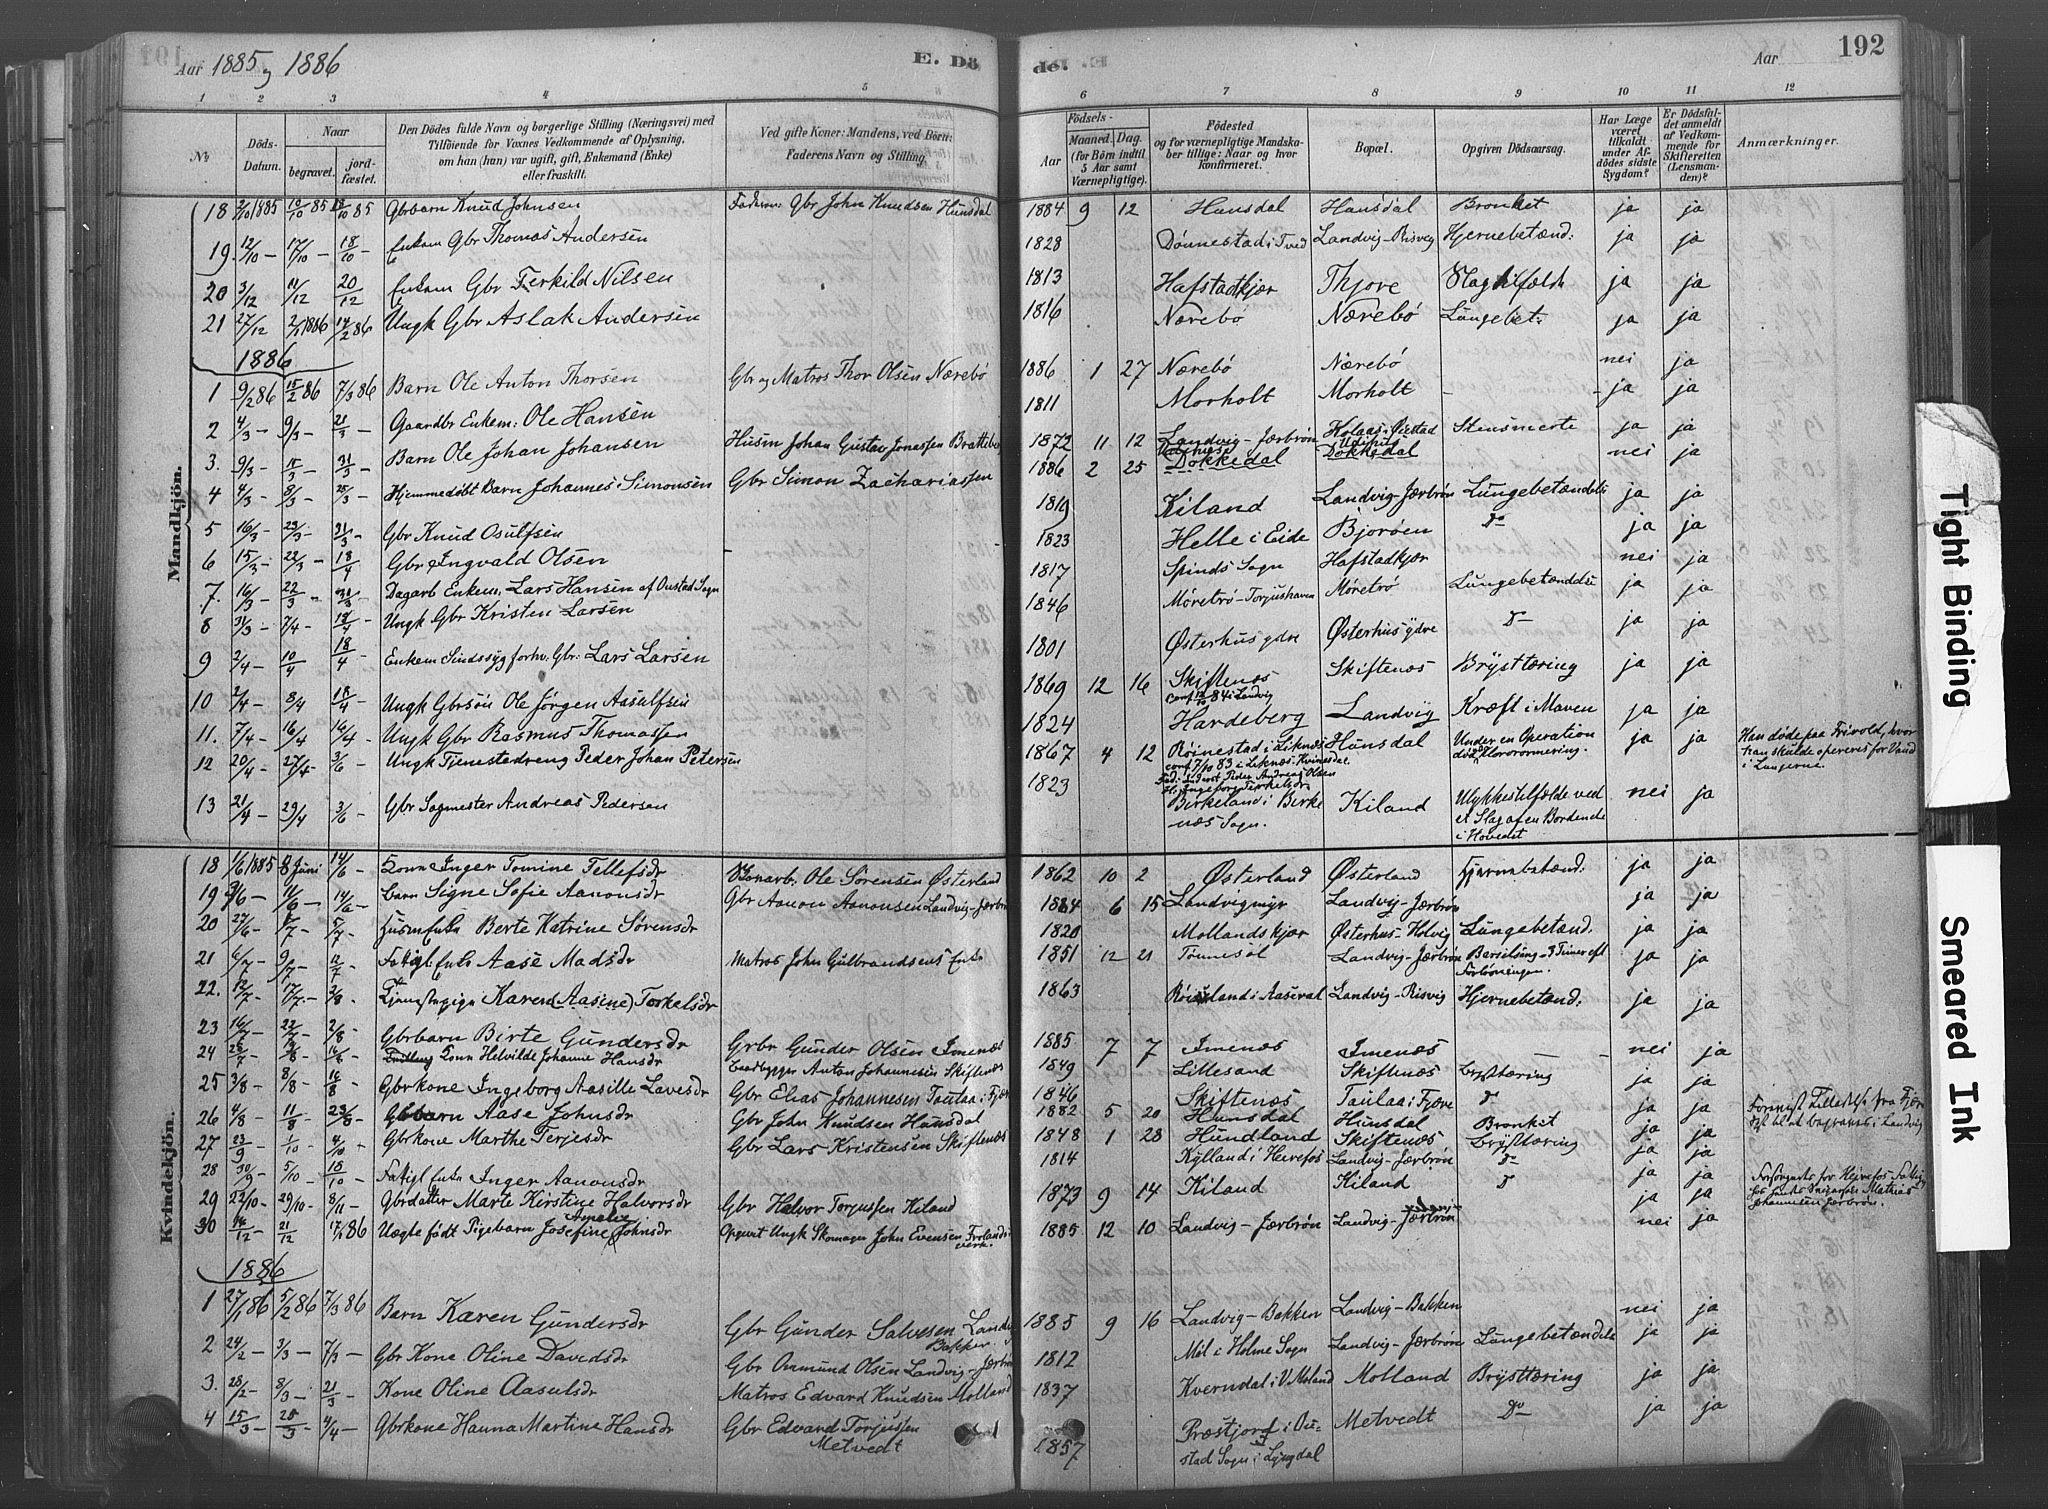 Aar 1885 og 1886
E. Dö
de.
Aar
192
1 2 3 4 5
6 7 8 9 10 11 12
No
Döds-Datum.
Naar
begravet.
jord-fæstet.
Den Dödes fulde Navn og borgerlige Stilling (Næringsvei) med
Tilföiende for Voxnes Vedkommende af Oplysning,
om han (hun) var ugift, gift, Enkemand (Enke)
eller fraskilt.
Ved gifte Koner: Mandens, ved Börn:
Faderens Navn og Stilling.
Födsels-
Aar
Maaned. Dag.
(for Börn indtil
5 Aar samt
Værnepligtige).
Födested
og for værnepligtige Mandska-
ber tillige: Naar og hvor
konfirmeret.
Bopæl.
Opgiven Dödsaarsag.
Har Læge
været
tilkaldt
under Af-
dödes sidste
Sygdom?
Er Dödsfal-
det anmeldt
af Vedkom-
mende for
Skifteretten
(Lensman-
den)?
Anmærkninger.
Mandkjön.
18 2/10 1885 10/10 85 18/10 85 Gbrbarn Knud Johnsen Faderen: Gbr John Knudsen Hunsdal 1884 9 12 Hunsdal Hunsdal Bronkit ja ja
19. 12/10 – 17/10 – 18/10 – Enkem Gbr Thomas Andersen 1828 Dønnestad i Tved Landvig-Risvig Hjernebetænd: ja ja
20 3/12 11/12 20/12 Enkem Gbr Terkild Nilsen 1813 Hafstadkjær Thjore Slagtilfælde ja ja
21 27/12 2/1 1886 14/2 86 Ungk Gbr Aslak Andersen 1816 Nærebö Nærebö Lungebet: ja ja
1886
1 9/2 86 15/2 86 7/3 86 Barn Ole Anton Thorsen Gbr og Matros Thor Olsen Nærebö 1886 1 27 Nærebö Nærebö nei ja
2 4/3 – 9/3 – 21/3 – Gaardbr Enkem: Ole Hansen 1811 Morholt Morholt – ja ja
3. 9/3 – 15/3 – 21/3 – Barn Ole Johan Johansen Husm Johan Gustav Jonassen Bratteb 1872 11 12 Landvig-Jærbrön Stensmerte ja ja
4 4/3 – 8/3 – 25/3 – Hjemmedöbt Barn Johannes Simonsen Gbr Simon Zachariassen 1886 2 25 Dokkedal Dokkedal nei ja
5 16/3 – 23/3 – 21/3 – Gbr Knud Osulfsen 1819 Kiland Landvig-Jærbrön Lungebetændelse ja ja
6 15/3 – 22/3 – 18/4 Gbr Ingvald Olsen – 1823 Helle i Eide Bjoröen Do ja ja
7. 16/3 – 22/3 – 21/3 – Dagarb Enkem: Lars Hansen af Oustad Sogn 1817 Spinds Sogn Hafstadkjær nei ja
8 31/3 – 7/4 – 18/4 – Ungk Gbr Kristen Larsen 1846 Møretrö-Torjushaven Møretrö Lungebetændelse ja ja
9 2/4 – 10/4 18/4 – Enkem Sindssyg forhv. Gbr: Lars Larsen 1801 Østerhus ydre Østerhus ydre Do ja ja
10 2/4 – 8/4 18/4 – Ungk Gbrsön Ole Jørgen Aasulfsen 1869 12 16 Skiftenæs Skiftenæs Brysttæring ja ja
conf 12/10 84 i Landvig
11. 7/4 – 16/4 16/4 – Ungk Gbr Rasmus Thomassen 1824 Hardeberg Landvig Kræft i Maven ja ja
12 20/4 – 27/4 – 3/6 – Ungk Tjenestedreng Peder Johan Petersen 1867 4 12 Röinestad i Liknæs Hunsdal Under en Operation ja ja Han døde paa Frivold, hvor
conf 7/10 83 i Liknæs Kvinesdal död Klorormering. han skulde opereres for Vand
Fad: Inderst Peder Andreas Olsen i Lungerne.
13 21/4 – 29/4 3/6 Gbr Sagmester Andreas Pedersen 1823 Birkeland i Birke Kiland Ulykkestilfælde ved nei ja
næs Sogn. et Slag af en Bordende
i Hovedet
Kvindekjön.
18 1/6 1885 8 Juni 14/6 – Inger Tomine Tellefsdr Ole Sörensen Østerland 1862 10 2 Østerland Østerland Hjernebetænd: ja ja
19 – 11/6 – 14/6 – Barn Signe Sofie Aanonsdr Gbr Aanon Aanonsen Landvig-Jærbrön 1884 6 15 Landvigmyr Landvig-Jærbrön ja ja
20 27/6 – 5/7 Husm Enke Berte Katrine Sörensdr 1820 Mollandskjær Østerhus-Holvig Lungebetænd. ja ja
21 6/7 – 9/7 – 12/7 Aase Madsdr Matros John Gulbrandsens Enke 1851 12 21 Tönnesöl Landvig-Jærbrön Barselseng – 3 Timer eft ja ja
Forlösningen.
22. 12/7 – 17/7 – 2/8 – Karen (Aasine) Torkelsdr 1863 Landvig-Risvig Hjernebetænd: ja ja
23 16/7 – 22/7 – 2/8 Gbrbarn Birte Gundersdr Grbr Gunder Olsen Imenæs 1885 7 7 Imenæs Imenæs nei ja
24 28/7 – Helvilde Johanne Hansdr Anton Johannesen Skiftenæs 1849 Lillesand Skiftenæs Brysttæring ja ja
25 3/8 – 8/8 – 16/8 Gbrkone Ingeborg Aasille Lavesdr Gbr Elias Johannesen Taulaa i Fjære 1846 Skiftenæs Taulaa i Fjære Do
26 4/8 11/8 – 23/8 – Gbrbarn Aase Johnsdr Gbr John Knudsen Hunsdal 1882 5 20 Hunsdal Hunsdal Bronkit ja ja
27 23/9 1/10 – 4/10 – Gbrkone Marthe Terjesdr Gbr Lars Kristensen Skiftenæs 1848 1 28 Hundland Skiftenæs Brysttæring ja ja
28 30/9 – 5/10 – 18/10 – Inger Aanonsdr 1814 Kylland i Herefos Landvig-Jærbrön Do ja ja
29 22/10 – 29/10 – 8/11 – Gbrdatter Marte Kirstine Halvorsdr Gbr Halvor Torjussen Kiland 1873 9 14 Kiland Kiland D ja ja
30 16/12 – 21/12 17/1 86 Uægte födt Pigebarn Josefine Amalie Johnsdr Opgivet Ungk Skomager John Evensen Frolands 1885 12 10 Landvig-Jærbrön Landvig-Jærbrön nei ja
værk.
1886
1 27/1 86 5/2 86 7/3 86 Barn Karen Gundersdr Gbr Gunder Salvesen Landv 1885 9 16 Landvig-Bakken Landvig-Bakken nei ja
Bakken
2 24/2 – 3/3 – 7/3 – Gbr Kone Oline Davidsdr Gbr Ommund Olsen Landvig-Jærbrön 1812 Möl i Holme Sogn Landvig-Jærbrön Lungebetændelse ja ja
3. 28/2 – 8/3 – 21/3 Kone Oline Aasulsdr Matros Edvard Knudsen Molland 1837 Kverndal i V Moland Molland Brysttæring ja ja
4 15/3 – 25/3 4/4 – Gbrkone Hanna Martine Hansdr Gbr Edvard Torjussen 1857 Præstjord i Ou- Metvedt Do ja ja
Metvedt stad Sogn i Lyngdal
Tight Binding
Smeared Ink